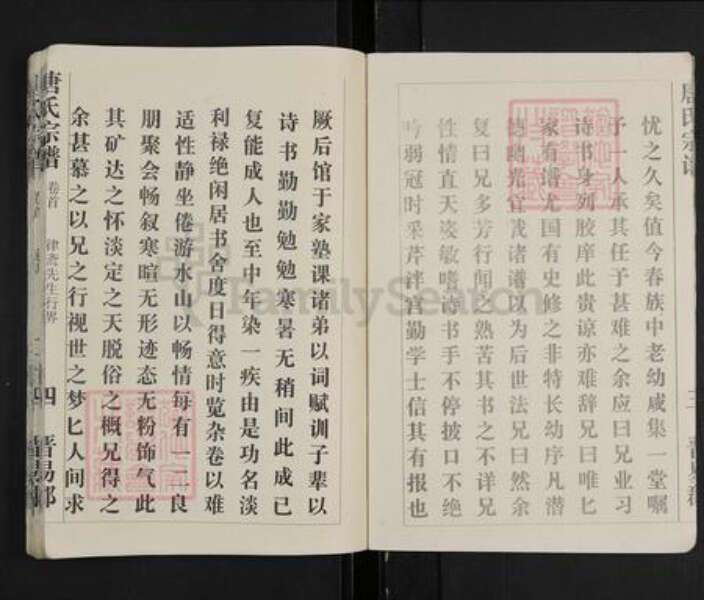 忧之久矣值今春族中老幼咸集一堂嘱
于一人承其任于甚难之余应曰兄业习
诗书身列胶庠此贵谅亦难辞兄曰唯匕
家有谱尤国有史修之非特长幼序凡潜
德幽光宜哉诸谱以为后世法兄曰然余
复曰兄多芳行闻之熟苦其书之不详兄
性情直天姿敏嗜诗书手不停披口不绝
吟弱冠时采芹泮宫勤学士信其有报也
厥后馆于家塾课诸弟以词赋训子辈以
诗书勤勤勉勉寒暑无稍间此成已
复能成人也至中年染一疾由是功名淡
利禄绝闲居书舍度日得意时览杂卷以难
适性静坐倦游水山以畅情每有一二良
朋聚会畅叙寒暄无形迹态无粉饰气此
其矿达之怀淡定之天脱俗之概兄得之
余甚慕之以兄之行视世之梦匕人间求
唐氏宗谱
卷首
律斋先生行畧
四
晋易郡
唐氏宗谱
三
FamilySearch